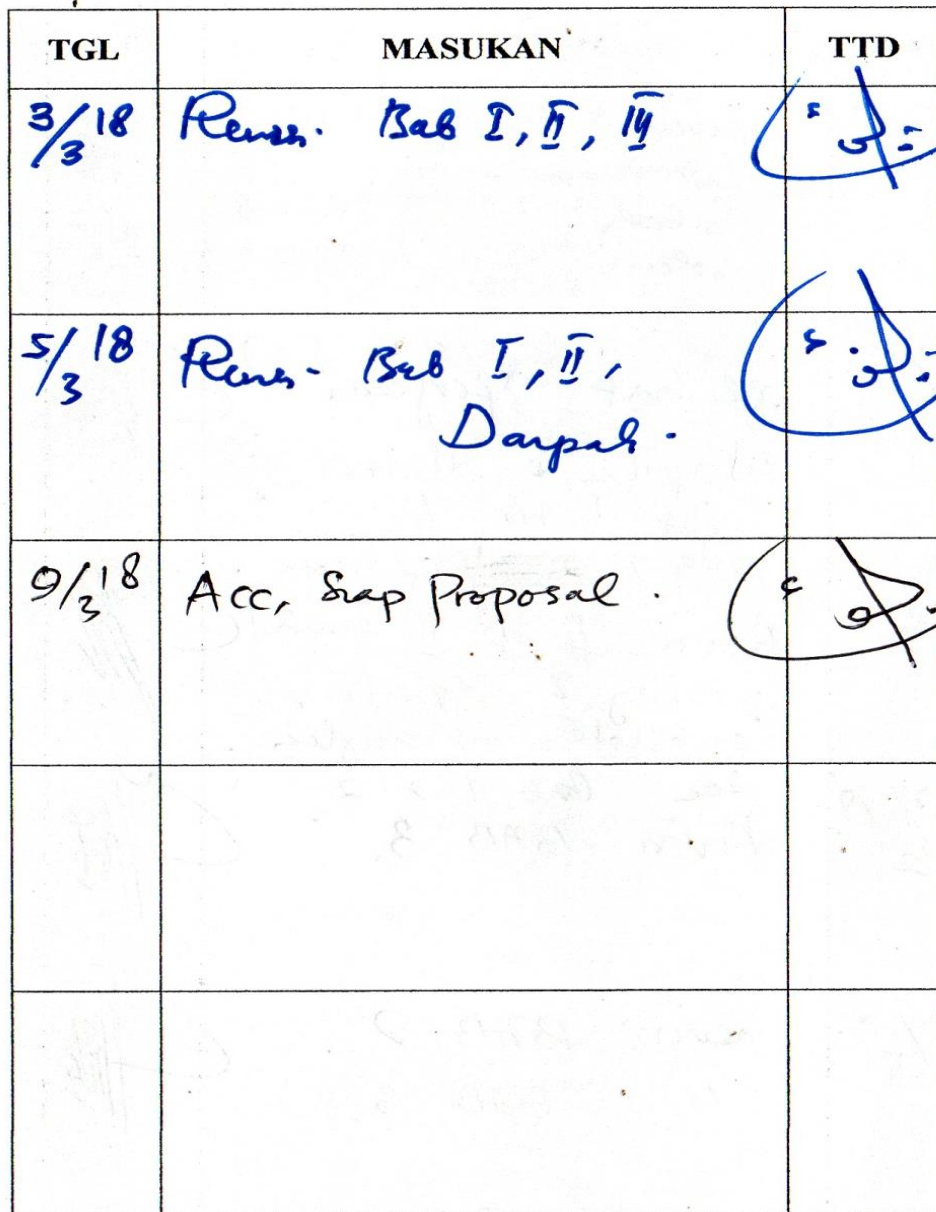 TGL MASUKAN TTD
3/3 18 Revisi. Bab I, II, III
5/3 18 Revisi - Bab I, II,
Darpah.
9/3 18 Acc, Siap Proposal.